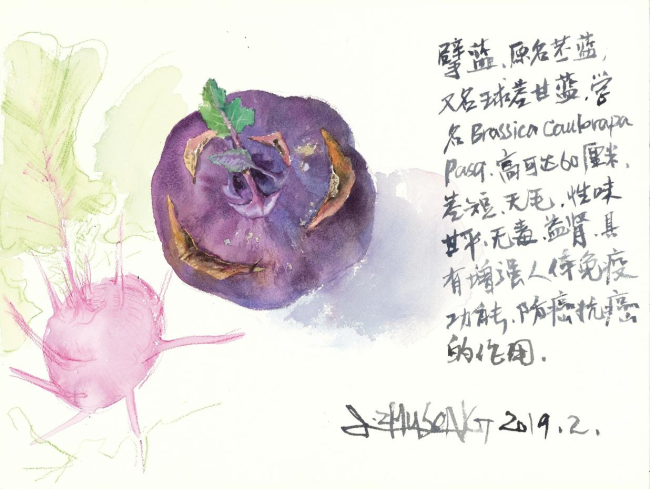 擘蓝、原名苤蓝,
又名球茎甘蓝.学
名Brassica Caulorapa
Pasq.高可达60厘米,
茎短,无毛,性味
甘平,无毒,益肾,具
有增强人体免疫
功能、防癌抗癌
的作用.
J.ZHUSENG 2019.2.